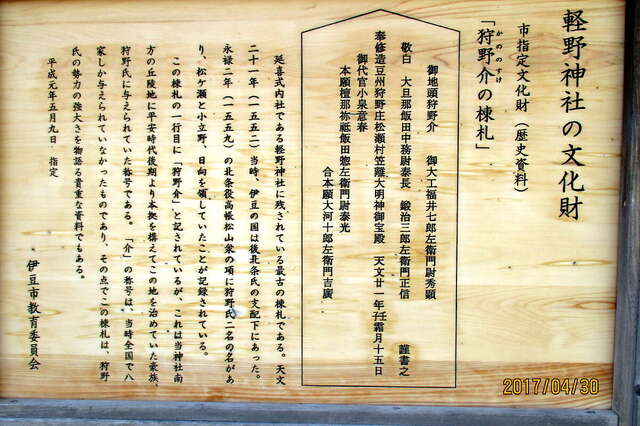 軽野神社の文化財
市指定文化財(歴史資料)
「狩野介の棟札」
かののすけ
御地頭狩野介 御大工福井七郎左衛門尉秀顕
敬白 大旦那飯田中務尉泰長 鍛治三郎左衛門正信 謹書之
奉修造豆州狩野庄松瀬村笠離大明神御宝殿 天文廿一年壬子霜月十五日
御代官小泉意春
本願檀那祢祗飯田惣左衛門尉泰光
合本願大河十郎左衛門吉廣
延喜式内社である軽野神社に残されている最古の棟札である。天文
二十一年(一五五二)当時、伊豆の国は後北条氏の支配下にあった。
永禄二年(一五五九)の北条役高帳松山衆の項に狩野氏二名の名があ
り、松ケ瀬と小立野、日向を領していたことが記録されている。
この棟札の一行目に「狩野介」と記されているが、これは当神社南
方の丘陵地に平安時代後期より本拠を構えてこの地を治めていた豪族、
狩野氏に与えられていた称号である。「介」の称号は、当時全国で八
家しか与えられていなかったものであり、その点でこの棟札は、狩野
氏の勢力の強大さを物語る貴重な資料でもある。
平成元年五月九日 指定
伊豆市教育委員会
2017/04/30